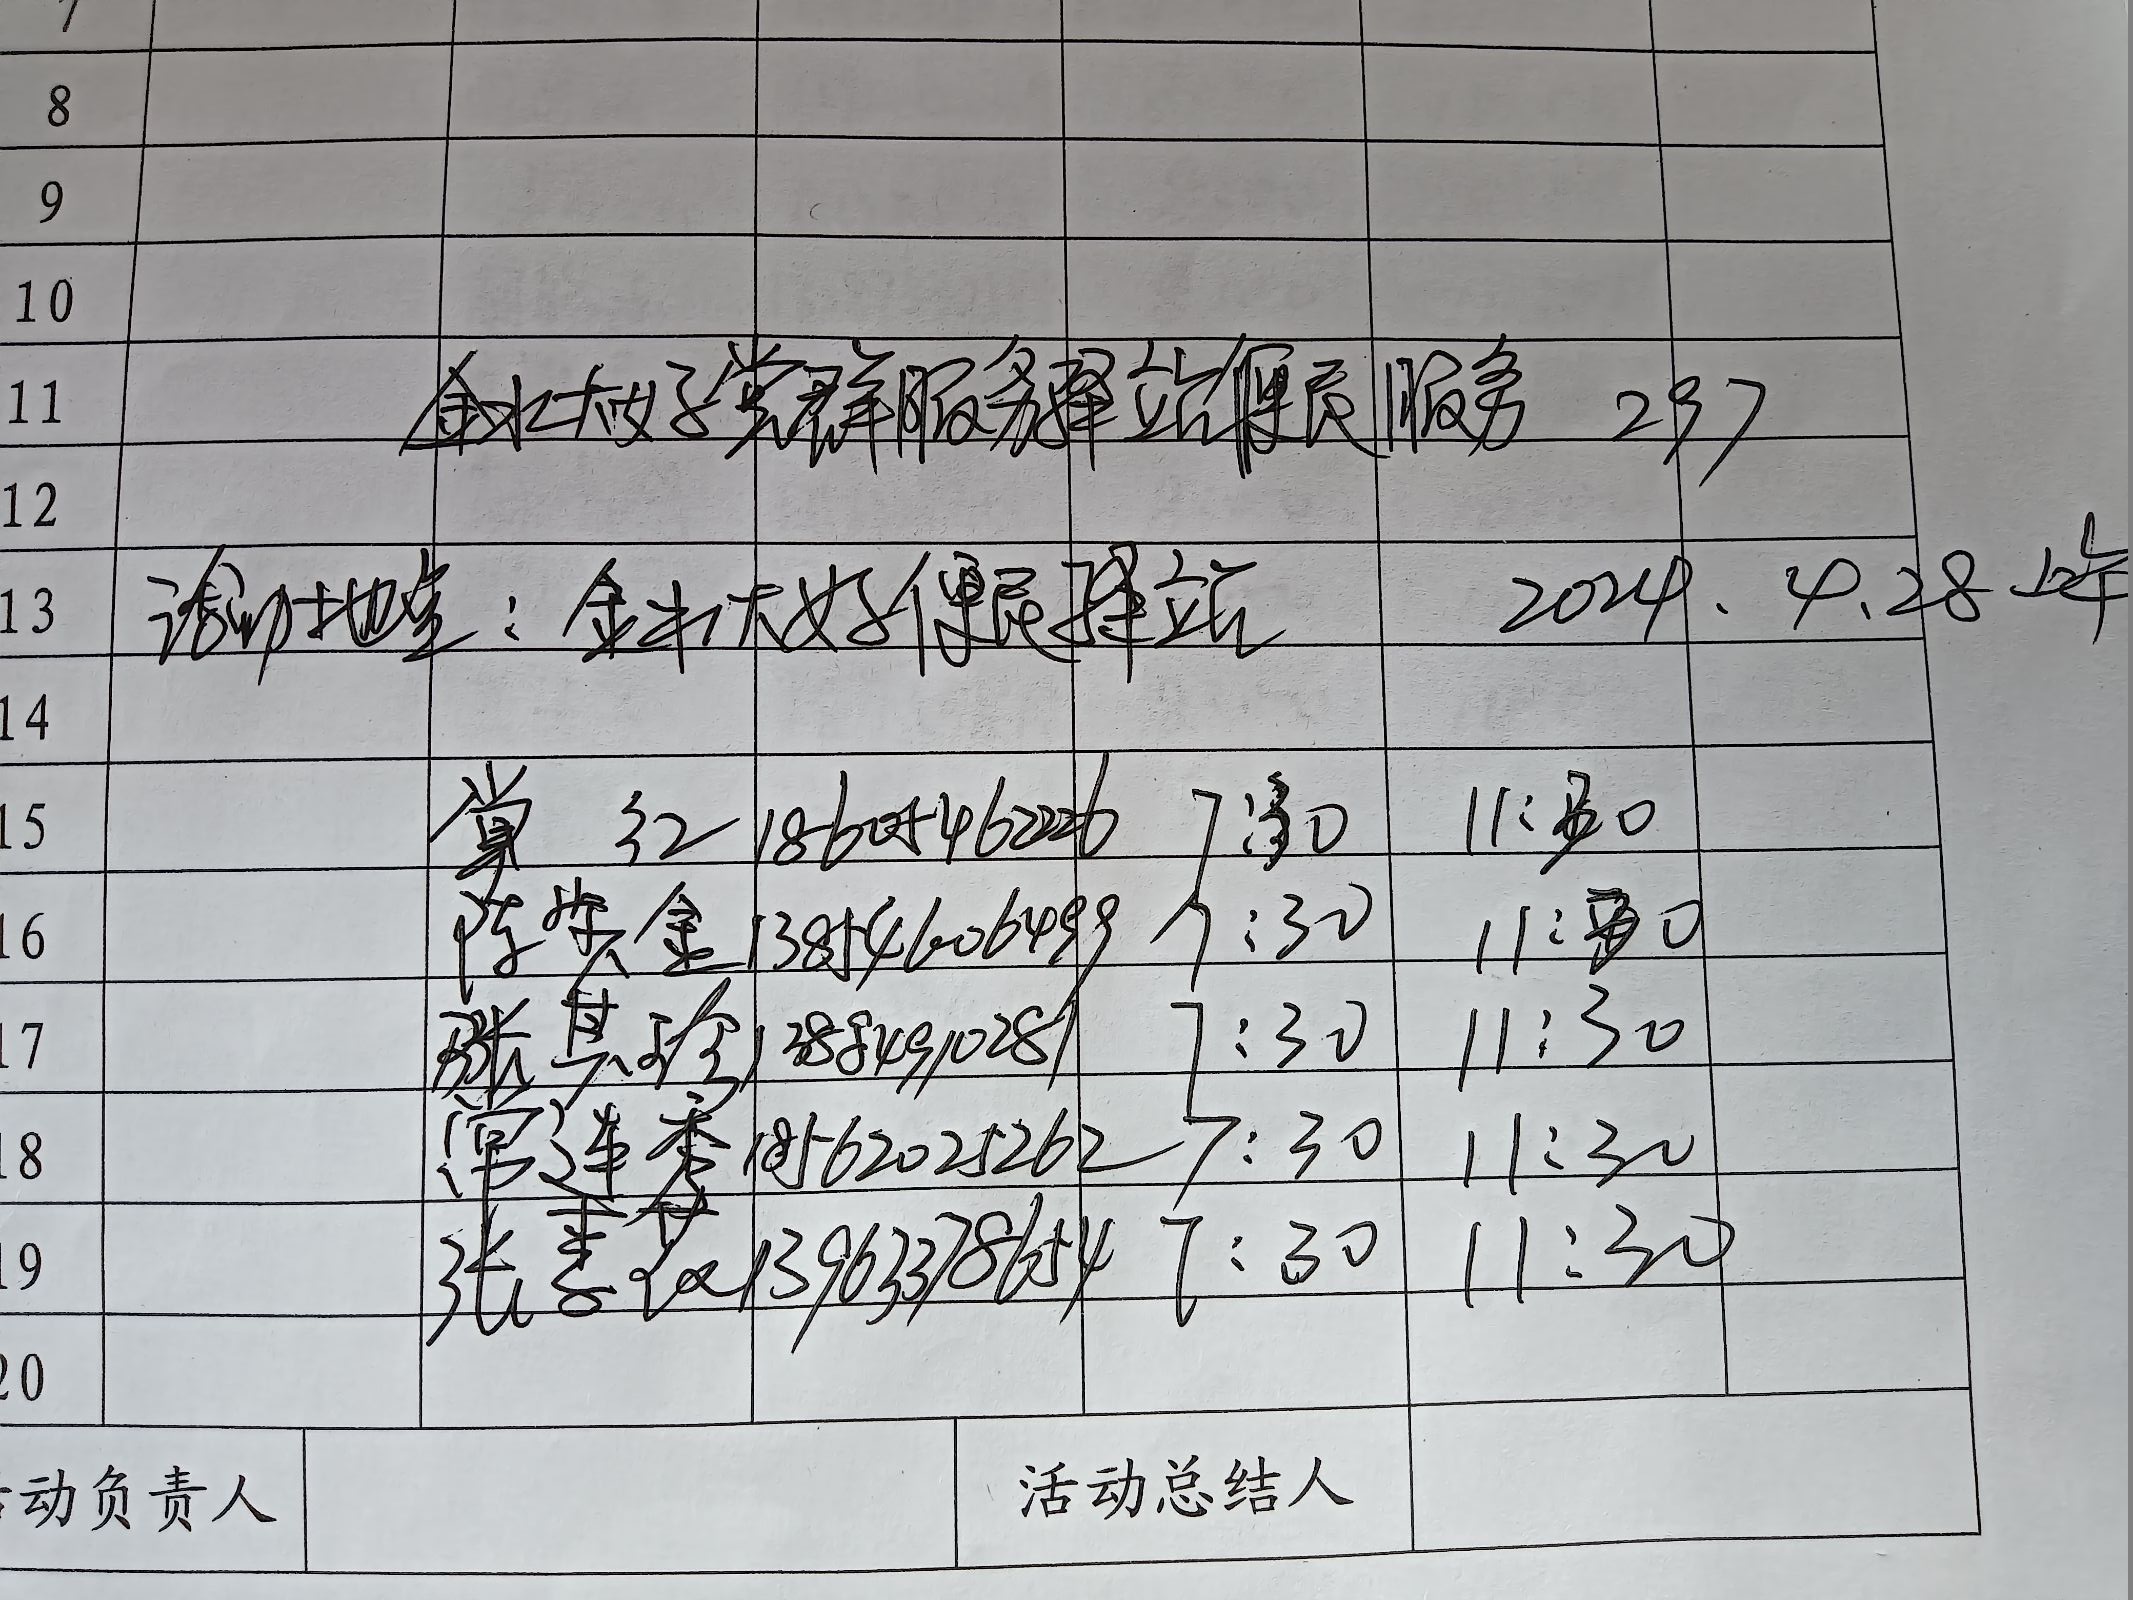 7
8
9
10
11 金水大好党群服务驿站便民服务 297
12
13 活动地点：金水大好便民驿站 2024.4.28上午
14
15 红 18605462226 7:30 11:30
16 陈 金 13854606499 7:30 11:30
17 张其珍 13884910281 7:30 11:30
18 连香 18562025262 7:30 11:30
19 张 13963378654 7:30 11:30
20
动负责人 活动总结人